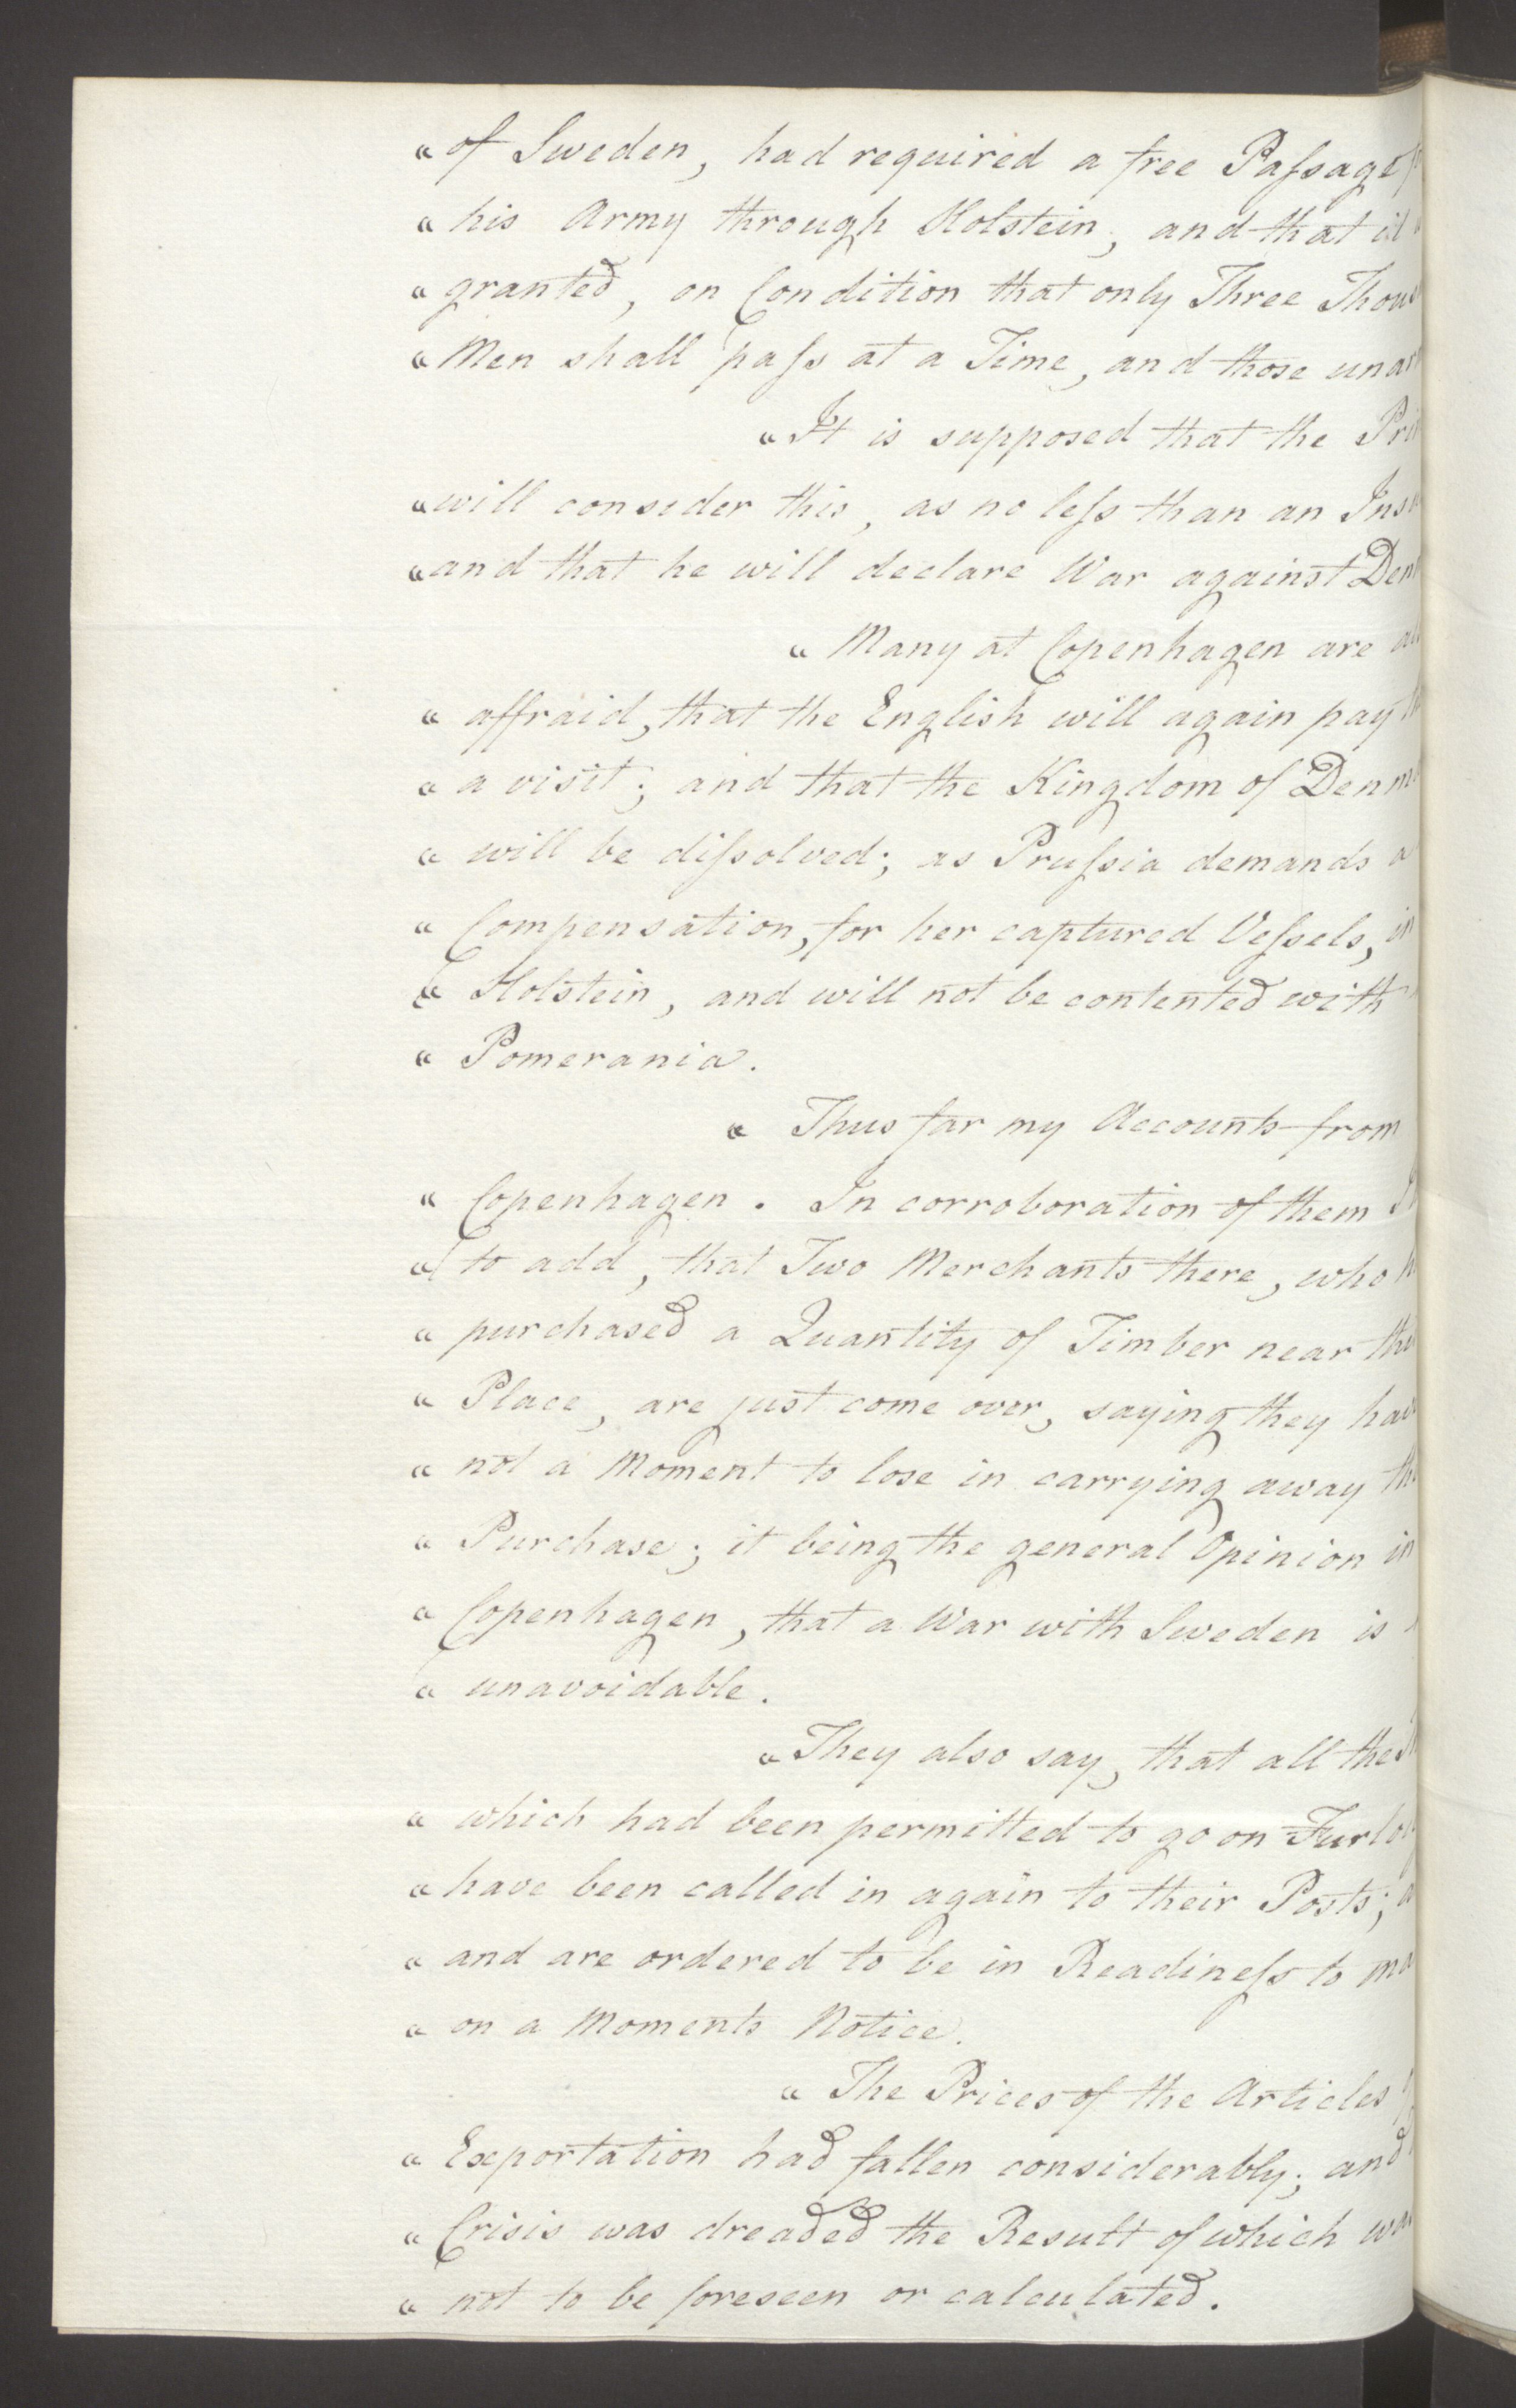 " of Sweden, had required a free Passage
" his Army through Holstein; and that it
" granted, on Condition that only Three
" Men shall pass at a Time, and those
" It is supposed that the
" will consider this, as no less than an
" and that he will declare War against
" Many at Copenhagen are
" affraid, that the English will again pay
" a visit; and that the Kingdom of
" will be dissolved; as Prussia demands a
" Compensation, for her captured Vessels, in
" Holstein, and will not be contented with
" Pomerania.
" Thus far my Accounts from
" Copenhagen. In corroboration of them I
" to add, that Two Merchants there, who
" purchased a Quantity of Timber near
" Place, are just come over, saying they
" not a Moment to lose in carrying away
" Purchase; it being the general Opinion in
" Copenhagen, that a War with Sweden is
" unavoidable.
" They also say, that all the
" which had been permitted to go on
" have been called in again to their Posts;
" and are ordered to be in Readiness to
" on a Moments Notice.
" The Prices of the Articles
" Exportation had fallen considerably; and
" Crisis was dreaded the Result of which
" not to be foreseen or calculated.